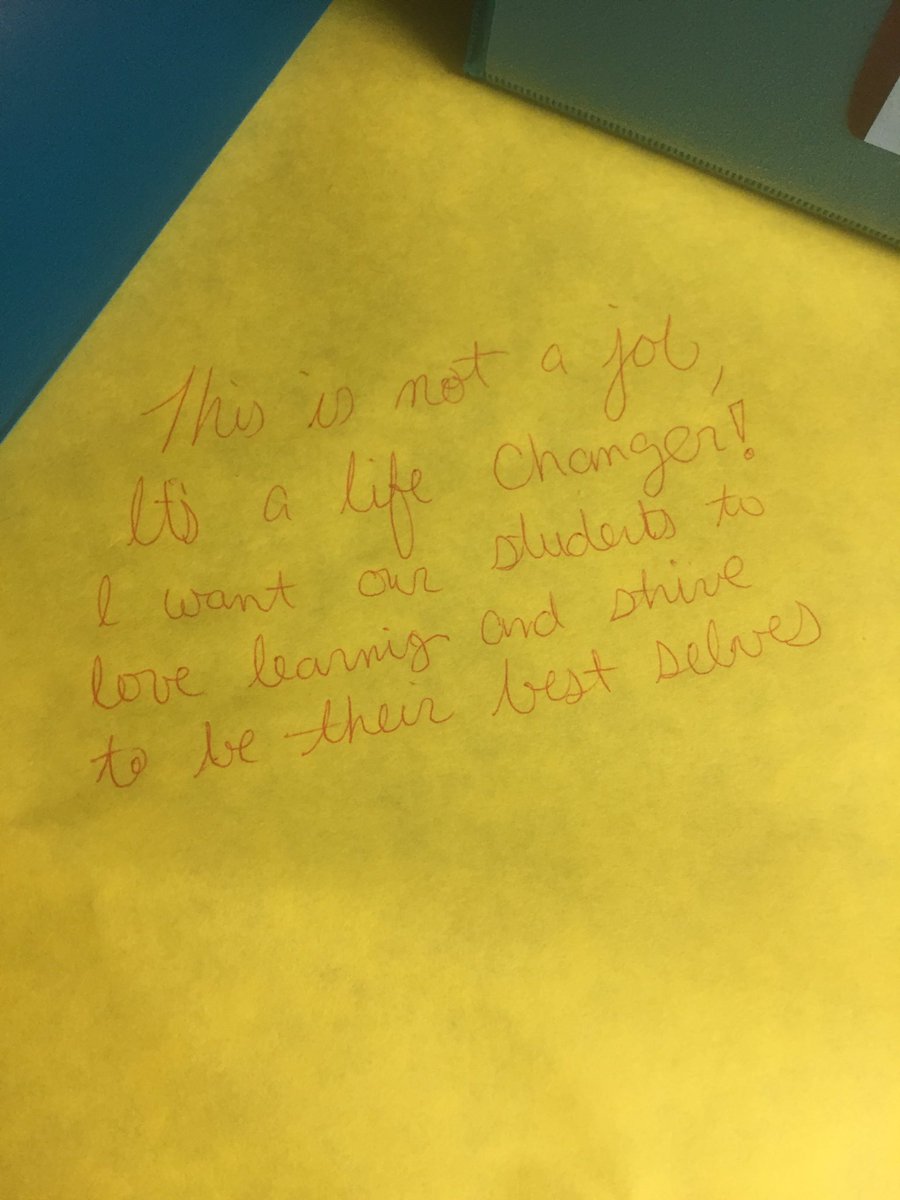 This is not a job,
It's a life changer!
I want our students to
love learning and strive
to be their best selves